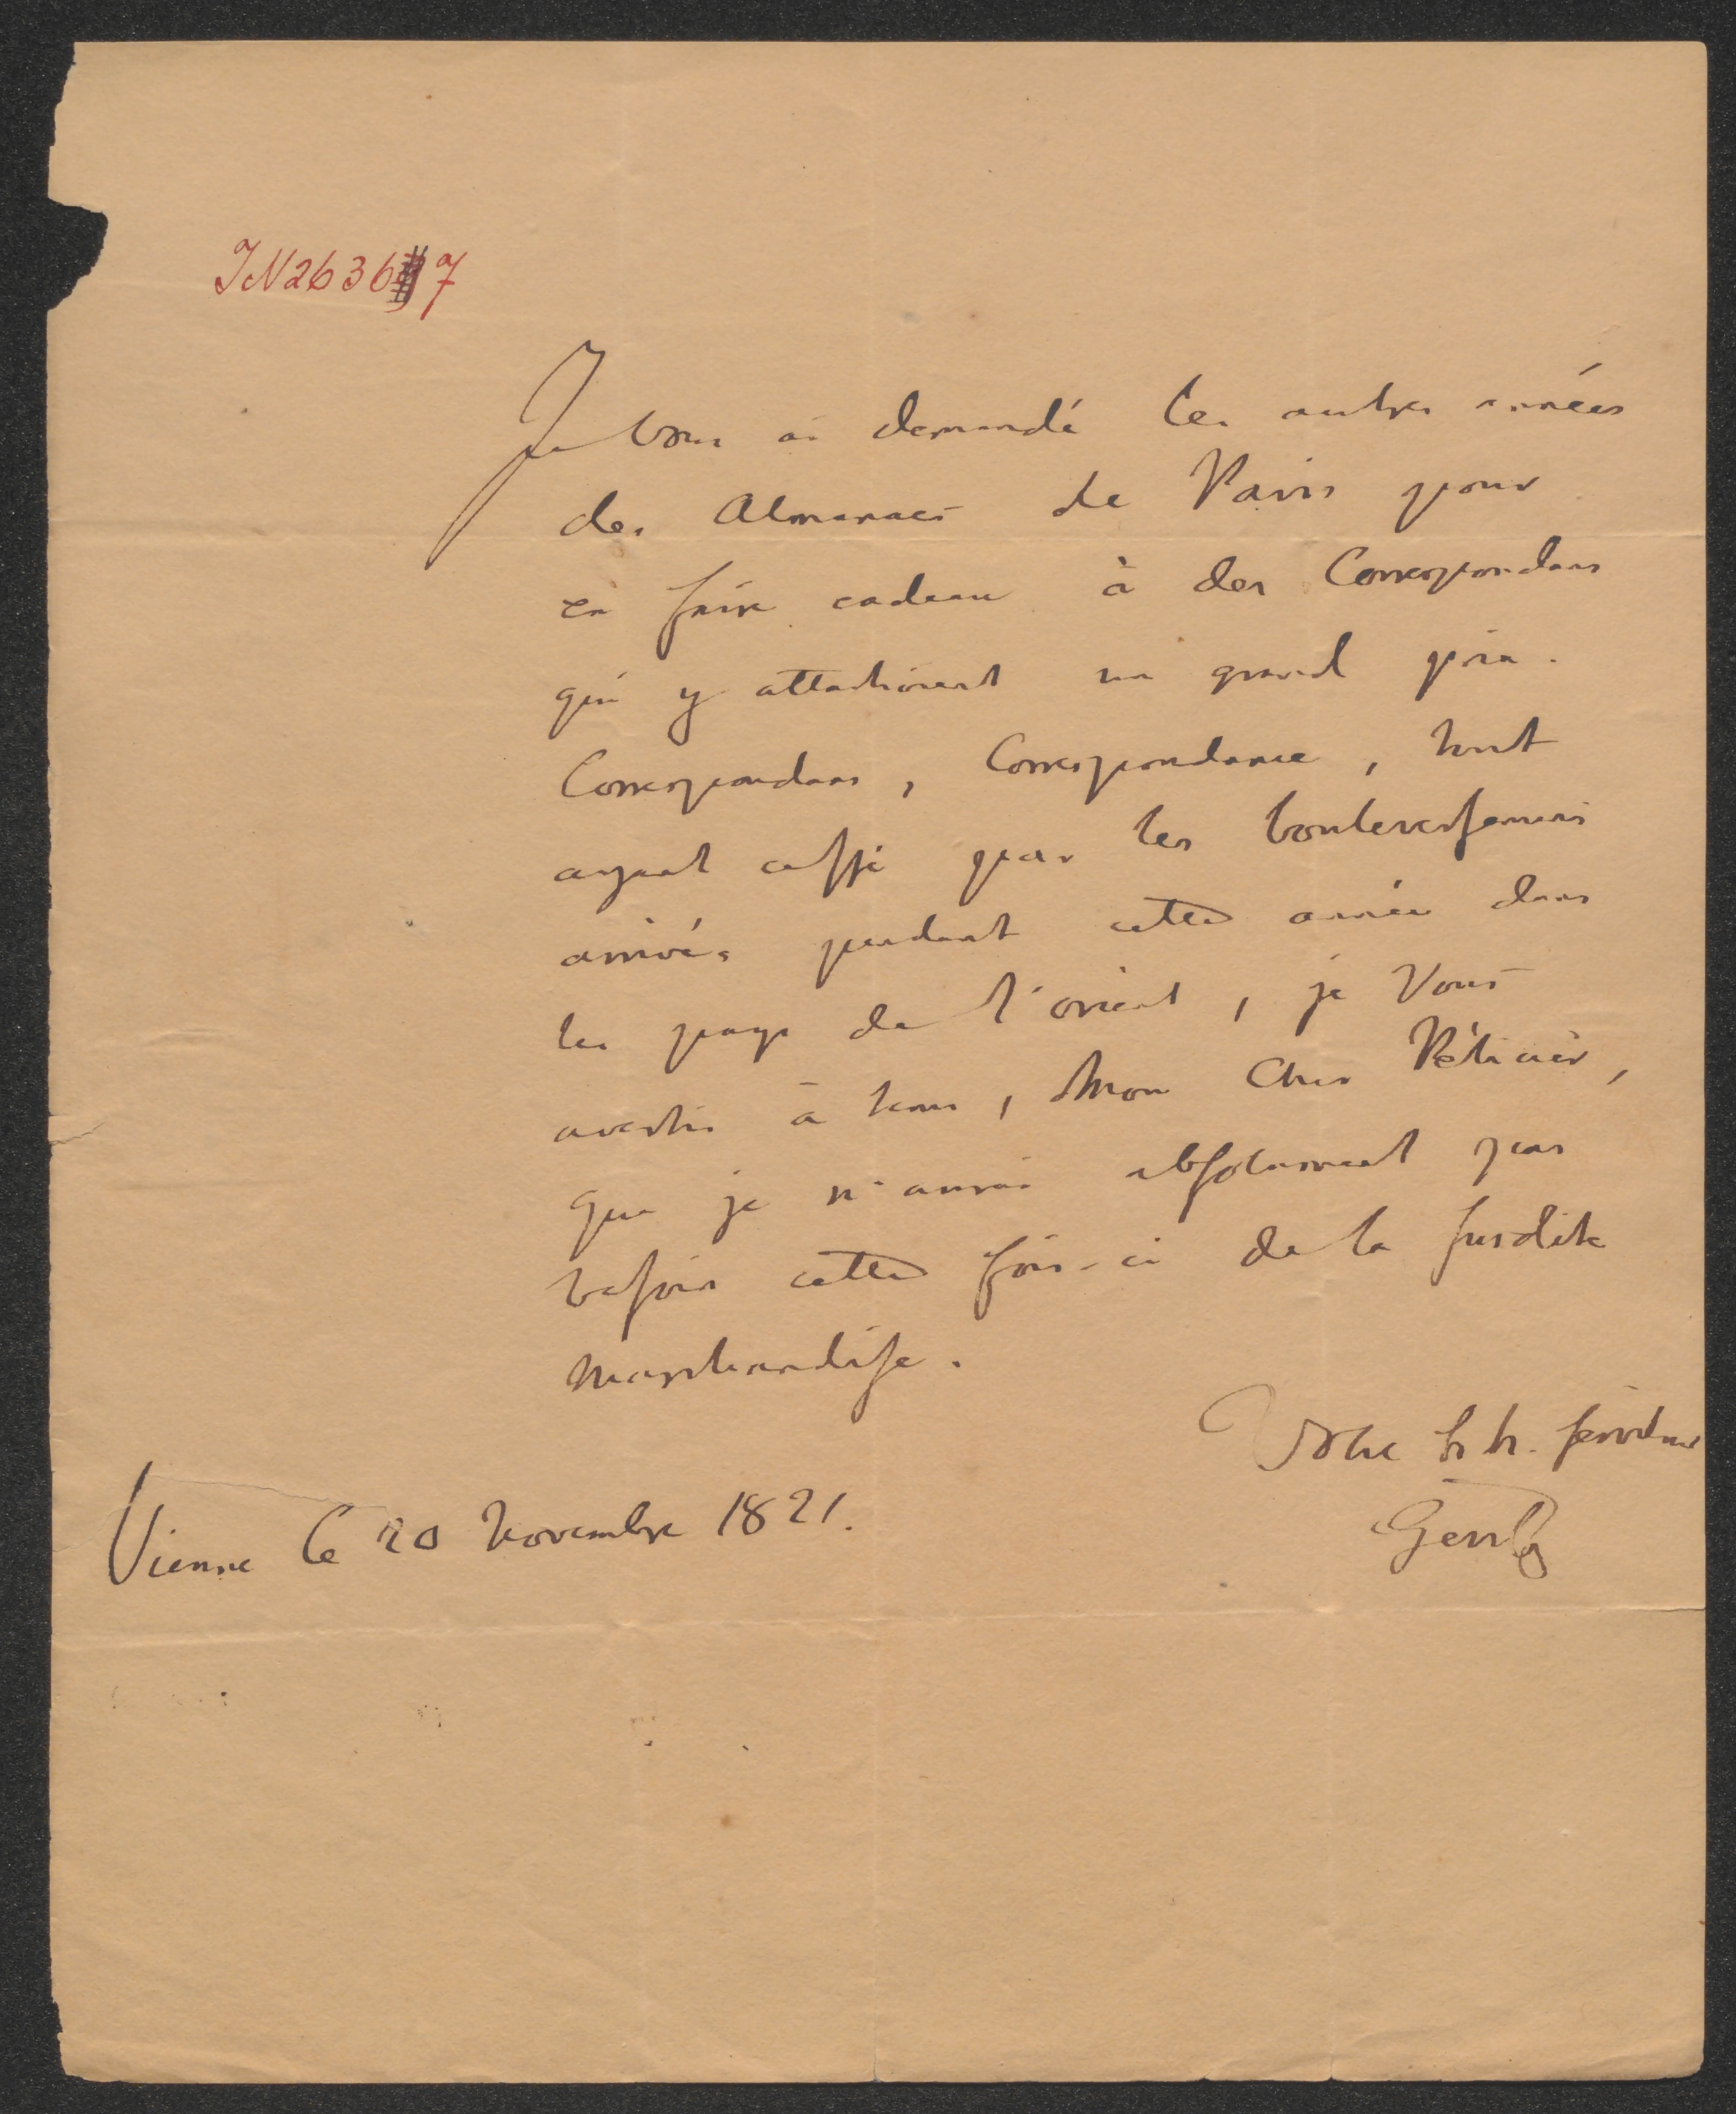 IN 26367
Je Vous ai demandé les autres années
des Almanacs de Paris pour
en faire cadeau à des Correspondans
qui y attachoient un grand prix.
Correspondans, Correspondance, tout
ayant cessé par les bouleversemens
arrivés pendant cette année dans
les pays de l'orient, je Vous
avertis à tems, Mon Cher Pélicier,
que je n'aurai absolument pas
besoin cette fois-ci de la susdite
Marchandise.
Votre tr. h. serviteur
Gentz
Vienne le 20 Novembre 1821.